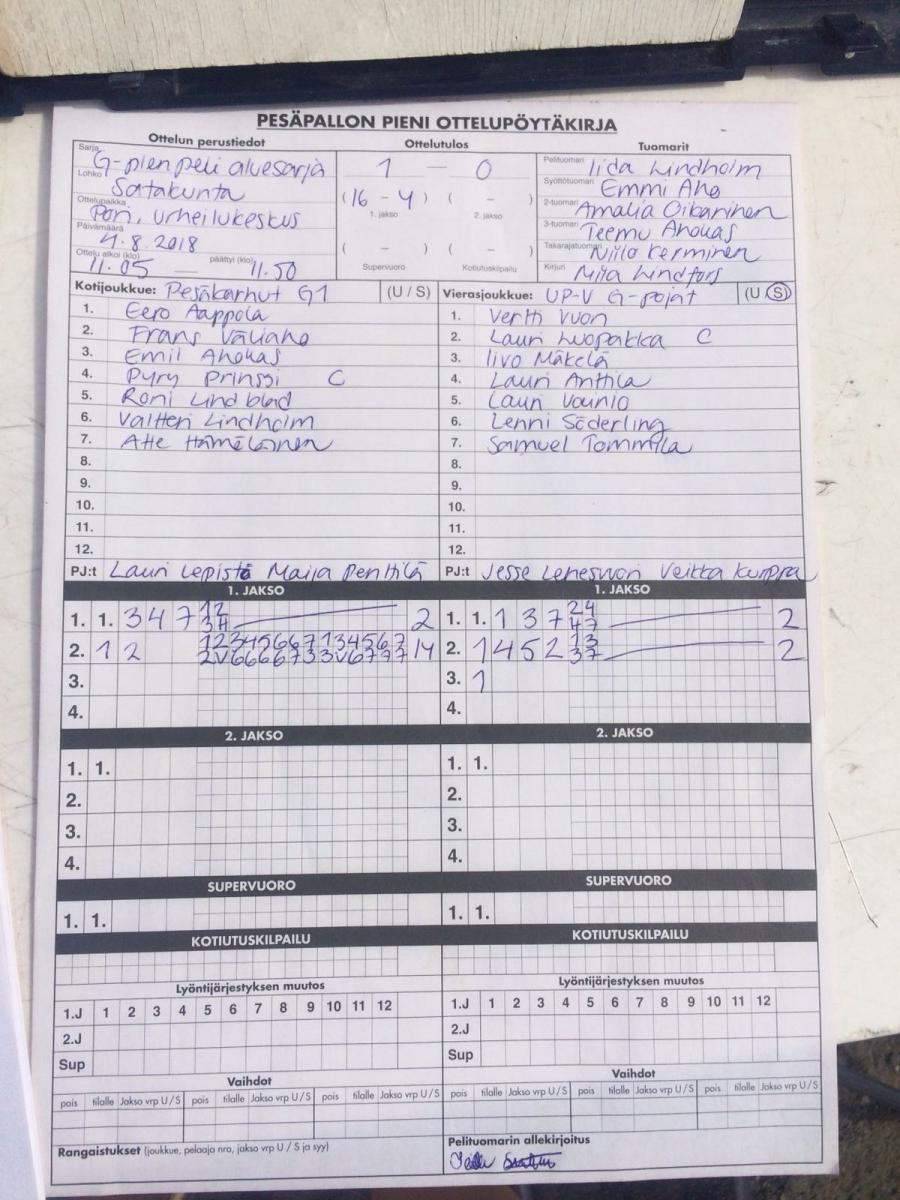 PESÄPALLON PIENI OTTELUPÖYTÄKIRJA
Ottelun perustiedot Ottelutulos Tuomarit
Sarja G-pienpeli aluesarja
Lohko Satakunta
Ottelupaikka Pori, urheilukeskus
Päivämäärä 4.8.2018
Ottelu alkoi (klo) 11.05 — päättyi (klo) 11.50
1 — 0
(16 - 4) ( - )
1. jakso 2. jakso
( - ) ( - )
Supervuoro Kotiutuskilpailu
Pelituomari Iida Lindholm
Syöttötuomari Emmi Aho
2-tuomari Amalia Oikarinen
3-tuomari Teemu Ahokas
Takarajatuomari Niilo Kerminen
Kirjuri Miia Lindfors
Kotijoukkue: Pesäkarhut G1 (U / S)
1. Eero Aappola
2. Frans Väliaho
3. Emil Ahokas
4. Pyry Prinssi C
5. Roni Lindblad
6. Valtteri Lindholm
7. Atte Hämäläinen
8.
9.
10.
11.
12.
PJ:t Lauri Lepistö Maija Penttilä
Vierasjoukkue: UP-V G-pojat (U / S)
1. Vertti Vuori
2. Lauri Luopakka C
3. Iivo Mäkelä
4. Lauri Anttila
5. Lauri Vainio
6. Lenni Söderling
7. Samuel Tommila
8.
9.
10.
11.
12.
PJ:t Jesse Lehesvuori Veikka Kumppa
1. JAKSO 1. JAKSO
1. 1. 3 4 7 12 2
34
2. 1 2 1234566713 4567 14
2V6666733V6777
3.
4.
1. 1. 1 3 7 24 2
47
2. 1 4 5 2 13 2
37
3. 1
4.
2. JAKSO 2. JAKSO
1. 1. 1. 1.
2. 2.
3. 3.
4. 4.
SUPERVUORO SUPERVUORO
1. 1. 1. 1.
KOTIUTUSKILPAILU KOTIUTUSKILPAILU
Lyöntijärjestyksen muutos Lyöntijärjestyksen muutos
1.J 1 2 3 4 5 6 7 8 9 10 11 12 1.J 1 2 3 4 5 6 7 8 9 10 11 12
2.J 2.J
Sup Sup
Vaihdot Vaihdot
pois tilalle Jakso vrp U / S pois tilalle Jakso vrp U / S pois tilalle Jakso vrp U / S pois tilalle Jakso vrp U / S pois tilalle Jakso vrp U / S pois tilalle Jakso vrp U / S
Rangaistukset (joukkue, pelaaja nro, jakso vrp U / S ja syy) Pelituomarin allekirjoitus